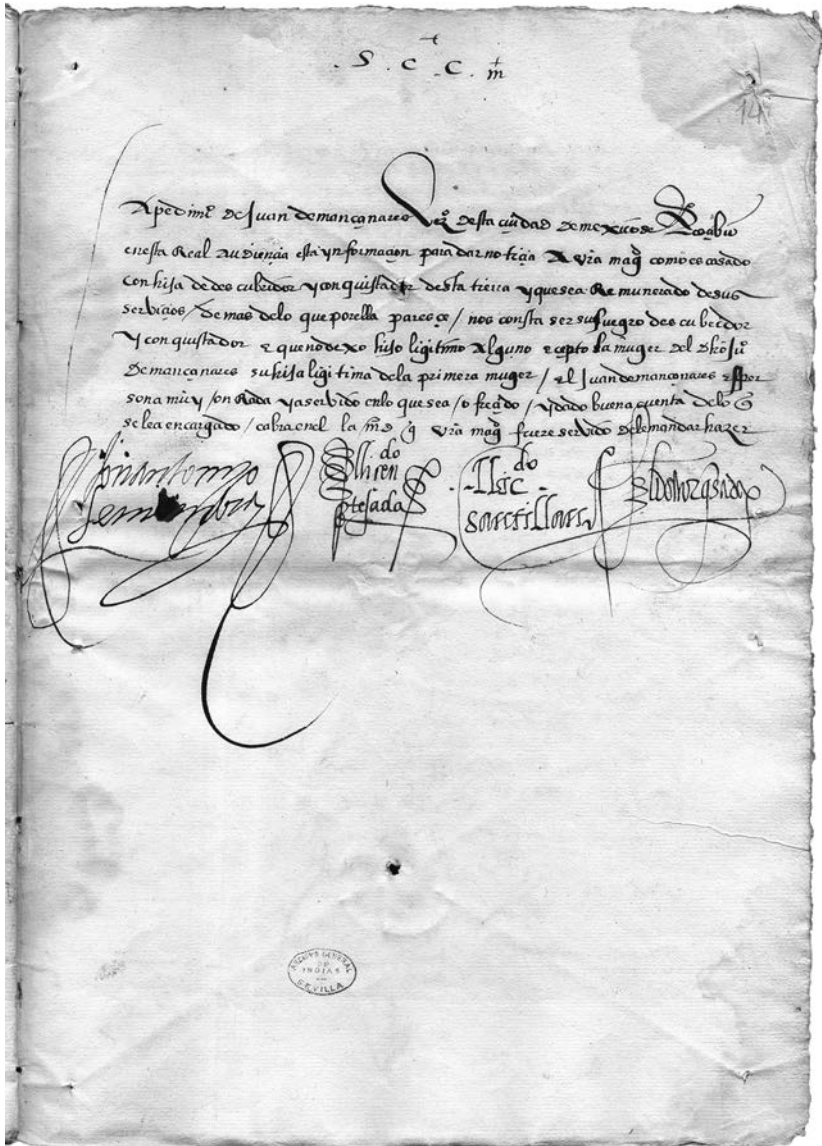 . S . C . C . m
141
A pedimiº de Juan de mançanares vezº desta ciudad de mexico se Resçibio
en esta Real audiençia esta ynformaçion para dar notiçia A vra magᵈ como es casado
con hija de descubridor y conquistador desta tierra y que sea Remunerado de sus
serviçios / demas de lo que por ella paresçe / nos consta ser su suegro descubridor
y conquistador e que no dexo hijo ligitimo Alguno eçepto la muger del dho juº
de mançanares su hija ligitima de la primera muger / el Juan de mançanares es per
sona muy onRada y a servido en lo que se a / ofreçido / y dado buena cuenta de lo q
se le a encargado / cabra en el la mᵈ q vra magᵈ fuere servido de le mandar hazer
don antonio
de mendoça
El liçenᵈᵒ
tejada
El licᵈᵒ
santillan
El Doctor quesada
ARCHIVO GENERAL
DE
INDIAS
SEVILLA